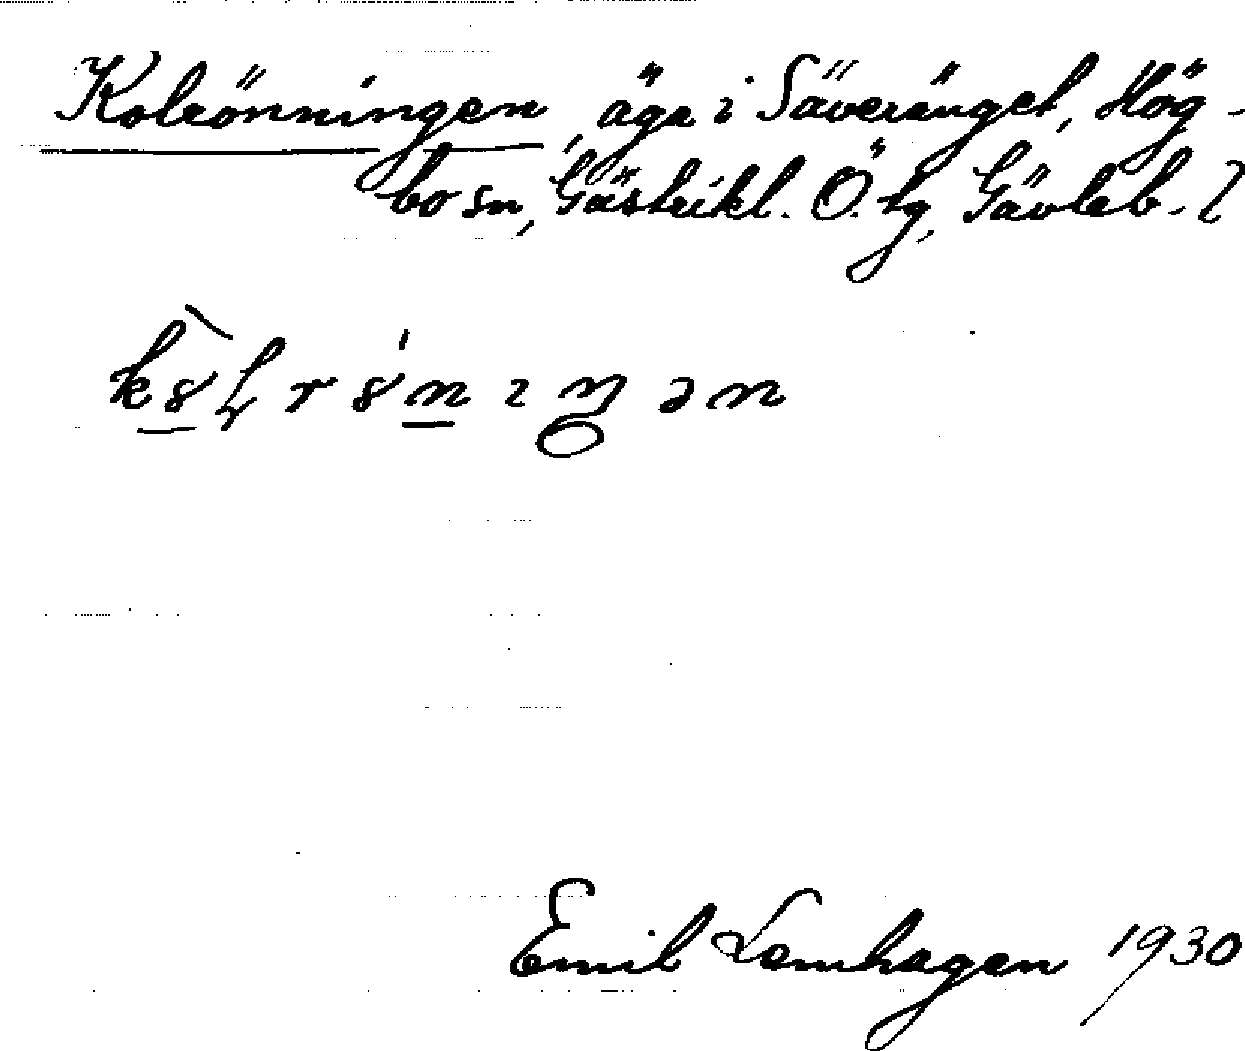 Kolrönningen, äga i Säveränget, Hög-
bo sn, Gästrikl. Ö. tg, Gävleb. l
Emil Lemhagen 1930